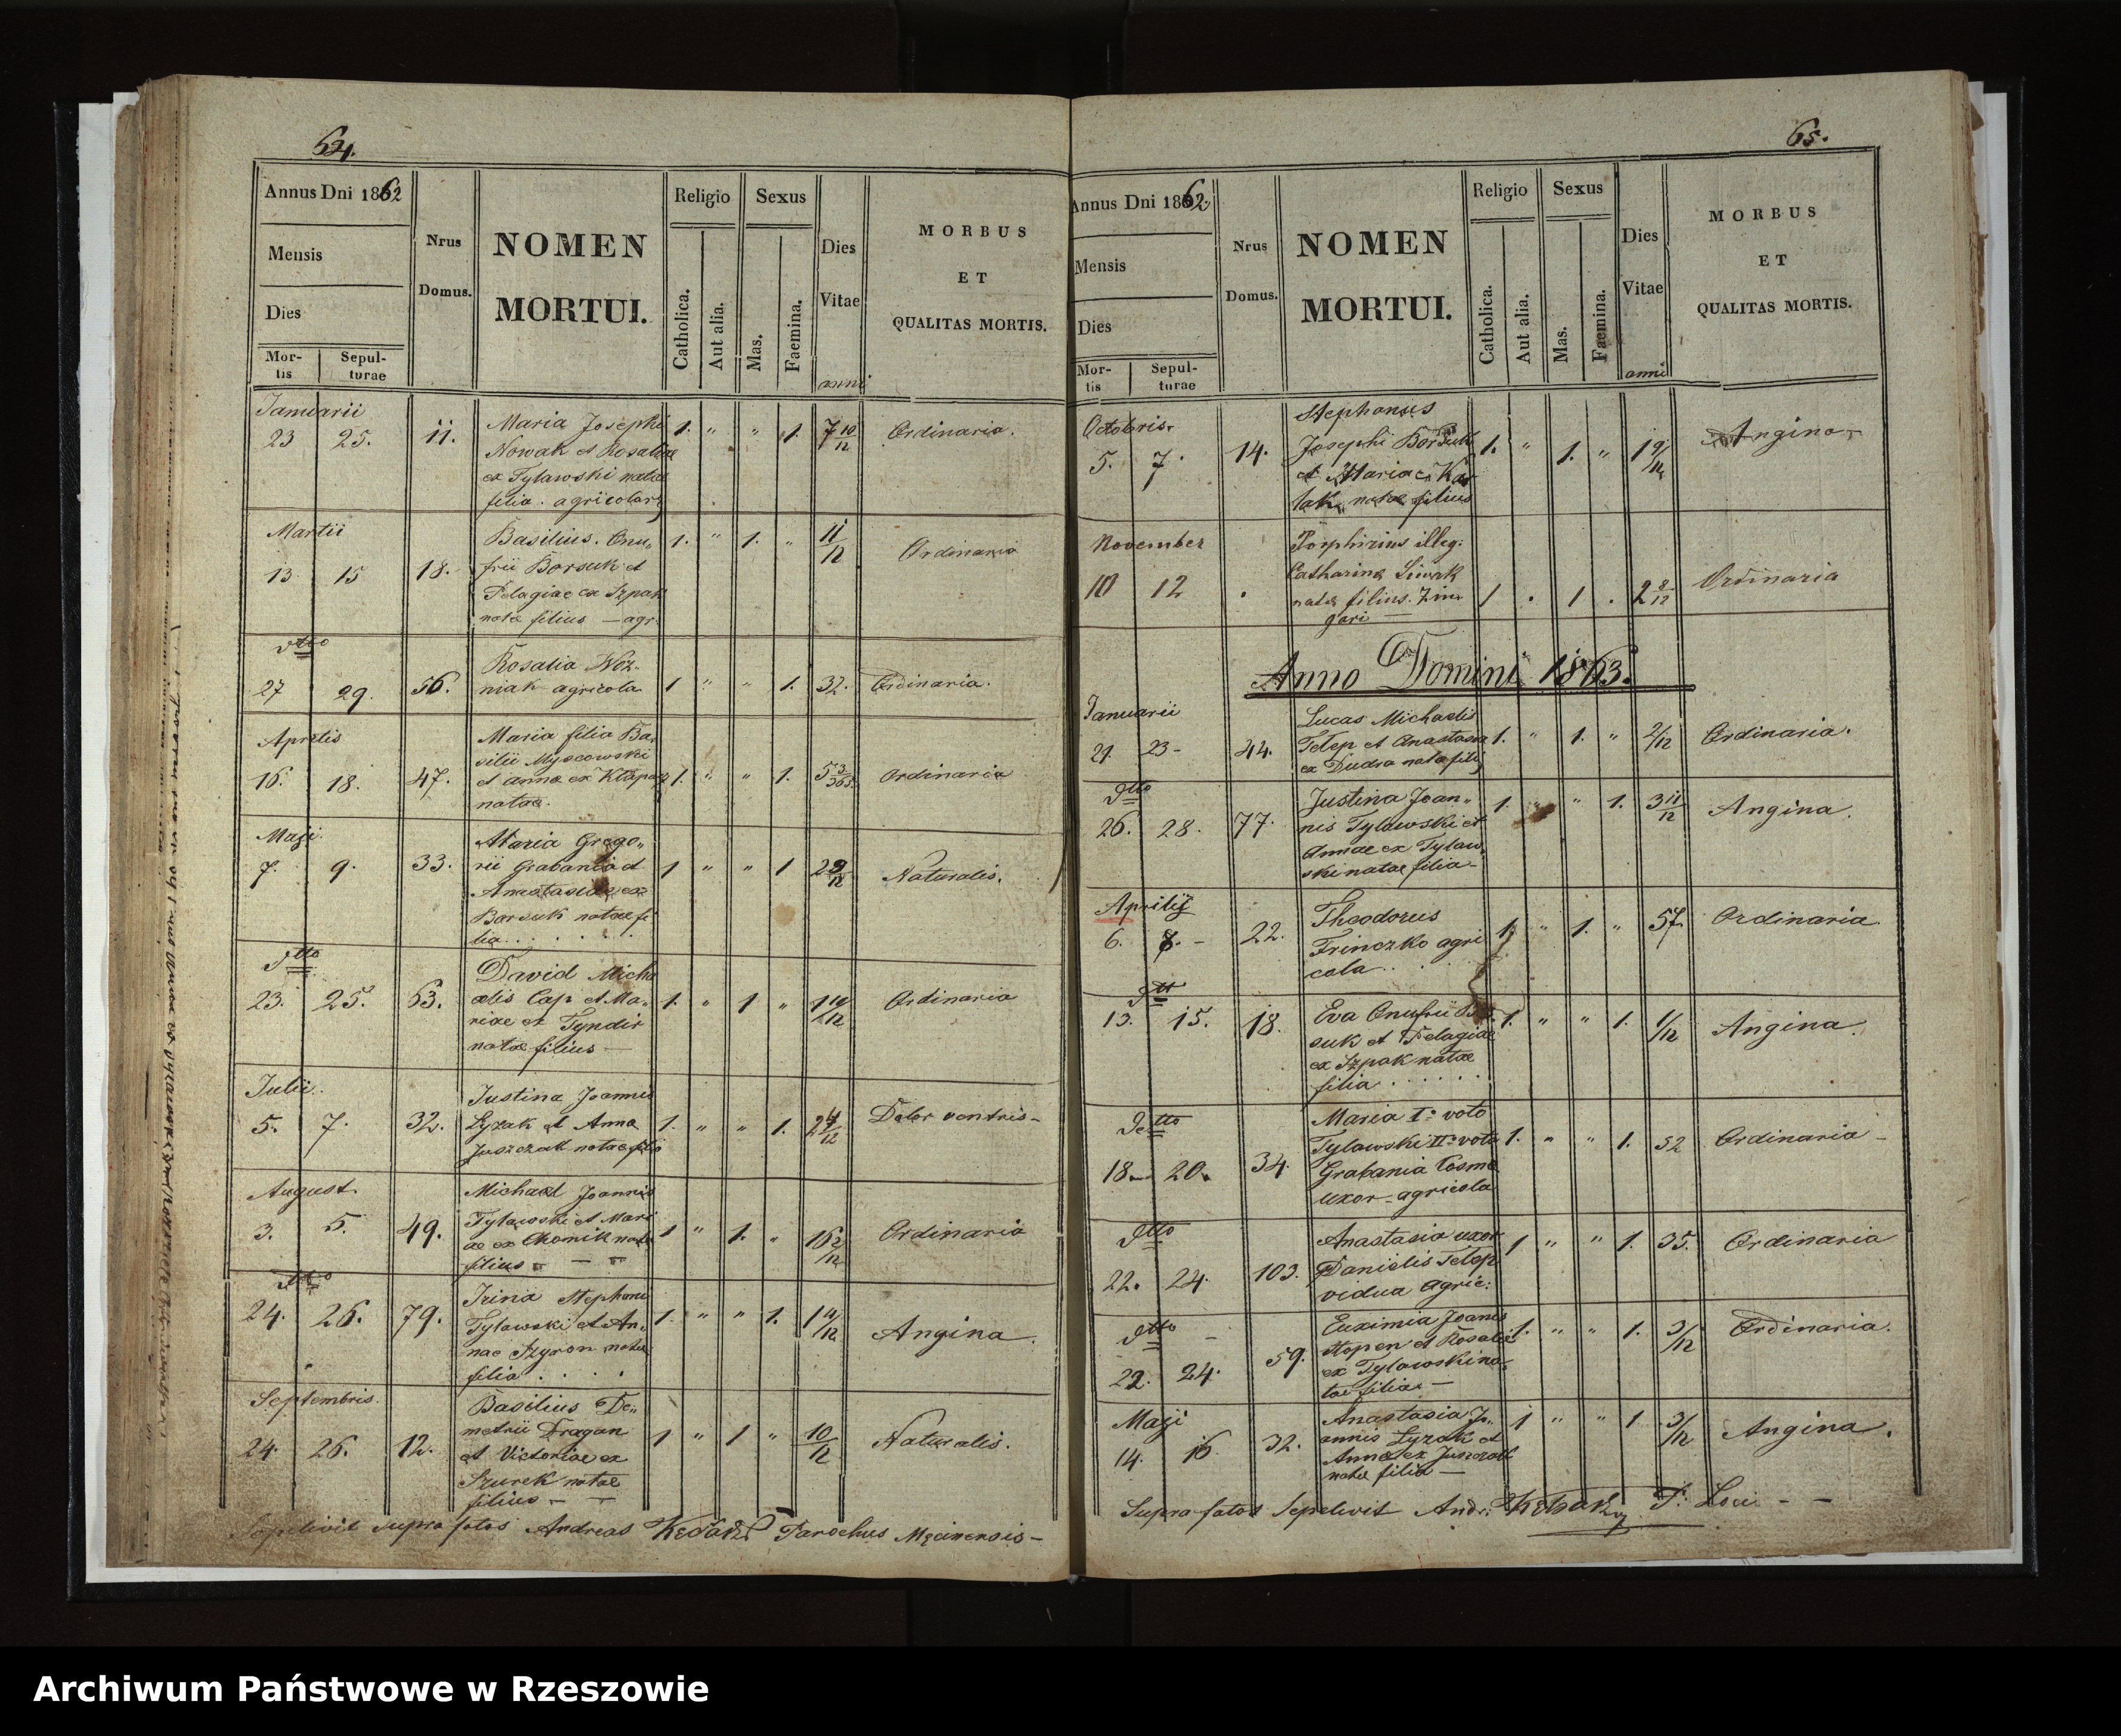 64.
Annus Dni 1862
Mensis
Dies
Mor-
tis
Sepul-
turae
Nrus
Domus.
NOMEN
MORTUI.
Religio
Catholica.
Aut alia.
Sexus
Mas.
Faemina.
Dies
Vitae
anni
MORBUS
ET
QUALITAS MORTIS.
Januarii
23 25. 11. Maria Josephi 1. " " 1. 7 10/12 Ordinaria.
Nowak et Rosaliae
ex Tylawski natae
filia. agricolar
Martii
13 15 18. Basilius. Onu„ 1. " 1. " 11/12 Ordinaria
frii Borsuk et
Pelagiae ex Szpak
natae filius — agr.
dtto
27 29. 56. Rosalia Woź„
niak agricola 1 " " 1. 32. Ordinaria.
Aprilis
16. 18. 47. Maria filia Ba„
silii Myscowski
et annae ex 1. " " 1. 5 3/365 Ordinaria
natae.
Maji
7. 9. 33. Maria Grego„
rii Grabania et 1 " " 1 2 9/12 Naturalis.
Anastasiae ex
Borsuk natae fi
lia . . . . . .
Dtto
23. 25. 63. David Micha
elis Cap et Ma„ 1. " 1 " 1 10/12 Ordinaria
riae ex Tyndir
natae filius —
Julii.
5. 7. 32. Justina Joannis
Lyzak et Anna 1. " " 1. 2 4/12 Dolor ventris -
Juszczak natae filia
August.
3. 5. 49. Michael Joannis
Tylawski et Mari 1 " 1. " 16 2/12 Ordinaria
ae ex Chomik natae
filius
dtto
24. 26. 79. Irina Stephani
Tylawski et An„ 1. " " 1. 1 11/12 Angina.
nae Szyron natae
filia . . . .
Septembris.
24. 26. 12. Basilius De„
metrii Dragan 1 " 1 " 10/12 Naturalis.
et Victoriae ex
Szurek natae
filius
Sepelivit supra fatos Andreas Parochus Męcinensis -
65.
Annus Dni 1862.
Mensis
Dies
Mor-
tis
Sepul-
turae
Nrus
Domus.
NOMEN
MORTUI.
Religio
Catholica.
Aut alia.
Sexus
Mas.
Faemina.
Dies
Vitae
anni
MORBUS
ET
QUALITAS MORTIS.
Octobris.
5. 7. 14. Stephanus
Josephi Borsuk 1. " 1. " 1 9/12 Angina
et Mariae
natae filius
November
10 12 . Porphirius illeg.
Catharinae
natae filius. Zin„ 1 . 1 . 2 8/12 Ordinaria
gari —
Anno Domini 1863.
Januarii
21. 23 - 44. Lucas Michaelis
Telep et Anastasia 1. " 1. " 2/12 Ordinaria.
ex Dudra natae fili
Dtto
26. 28. 77. Justina Joan„ 1. " " 1. 3 11/12 Angina.
nis Tylawski et
Annae ex Tylaw„
ski natae filia -
Aprilis
6. 8. - 22. Theodorus 1 " 1. " 57. Ordinaria
Frinczko agri
cola . . .
Dtto
13. 15. 18. Eva Onufrii Bor„ 1. " " 1. 1/12 Angina.
suk et Pelagiae
ex Szpak natae
filia . . . . . .
Detto
18 - 20. 34. Maria I° voto
Tylawski II° voto 1. " " 1. 52 Ordinaria -
Grabania Cosma
uxor - agricola
Dtto
22. 24. 103. Anastasia uxor 1 " " 1. 35. Ordinaria
Danielis Telep
vidua agric:
Dtto -
22. 24. 59. Euximia Joanis 1. " " 1. 3/12 Ordinaria.
Stopen et Rosalia
ex Tylawski na„
tae filia —
Maji
14. 16 32. Anastasia Jo„ 1 " " 1 3/12 Angina.
annis Lyzak et
Annae ex Juszczak
natae filia —
Supra fatos Sepelivit Andr: P. Loci - -
Archiwum Państwowe w Rzeszowie